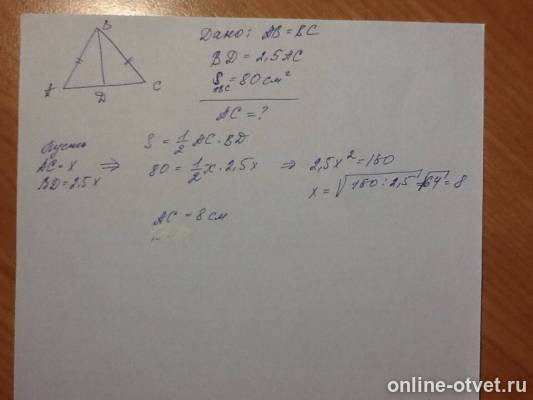 B
A
D
C
Дано: AB = BC
BD = 2,5 AC
S ABC = 80 см²
AC = ?
Пусть
AC = x
BD = 2,5x
⇒
S = 1/2 AC · BD
80 = 1/2 x · 2,5x ⇒ 2,5x² = 160
x = √160 : 2,5 = √64 = 8
AC = 8 см
online-otvet.ru